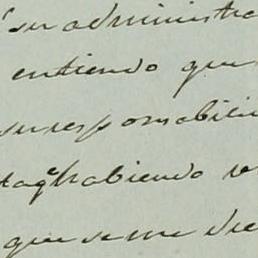 su administra
entiendo que
su responsabili
habiendo
que se me die